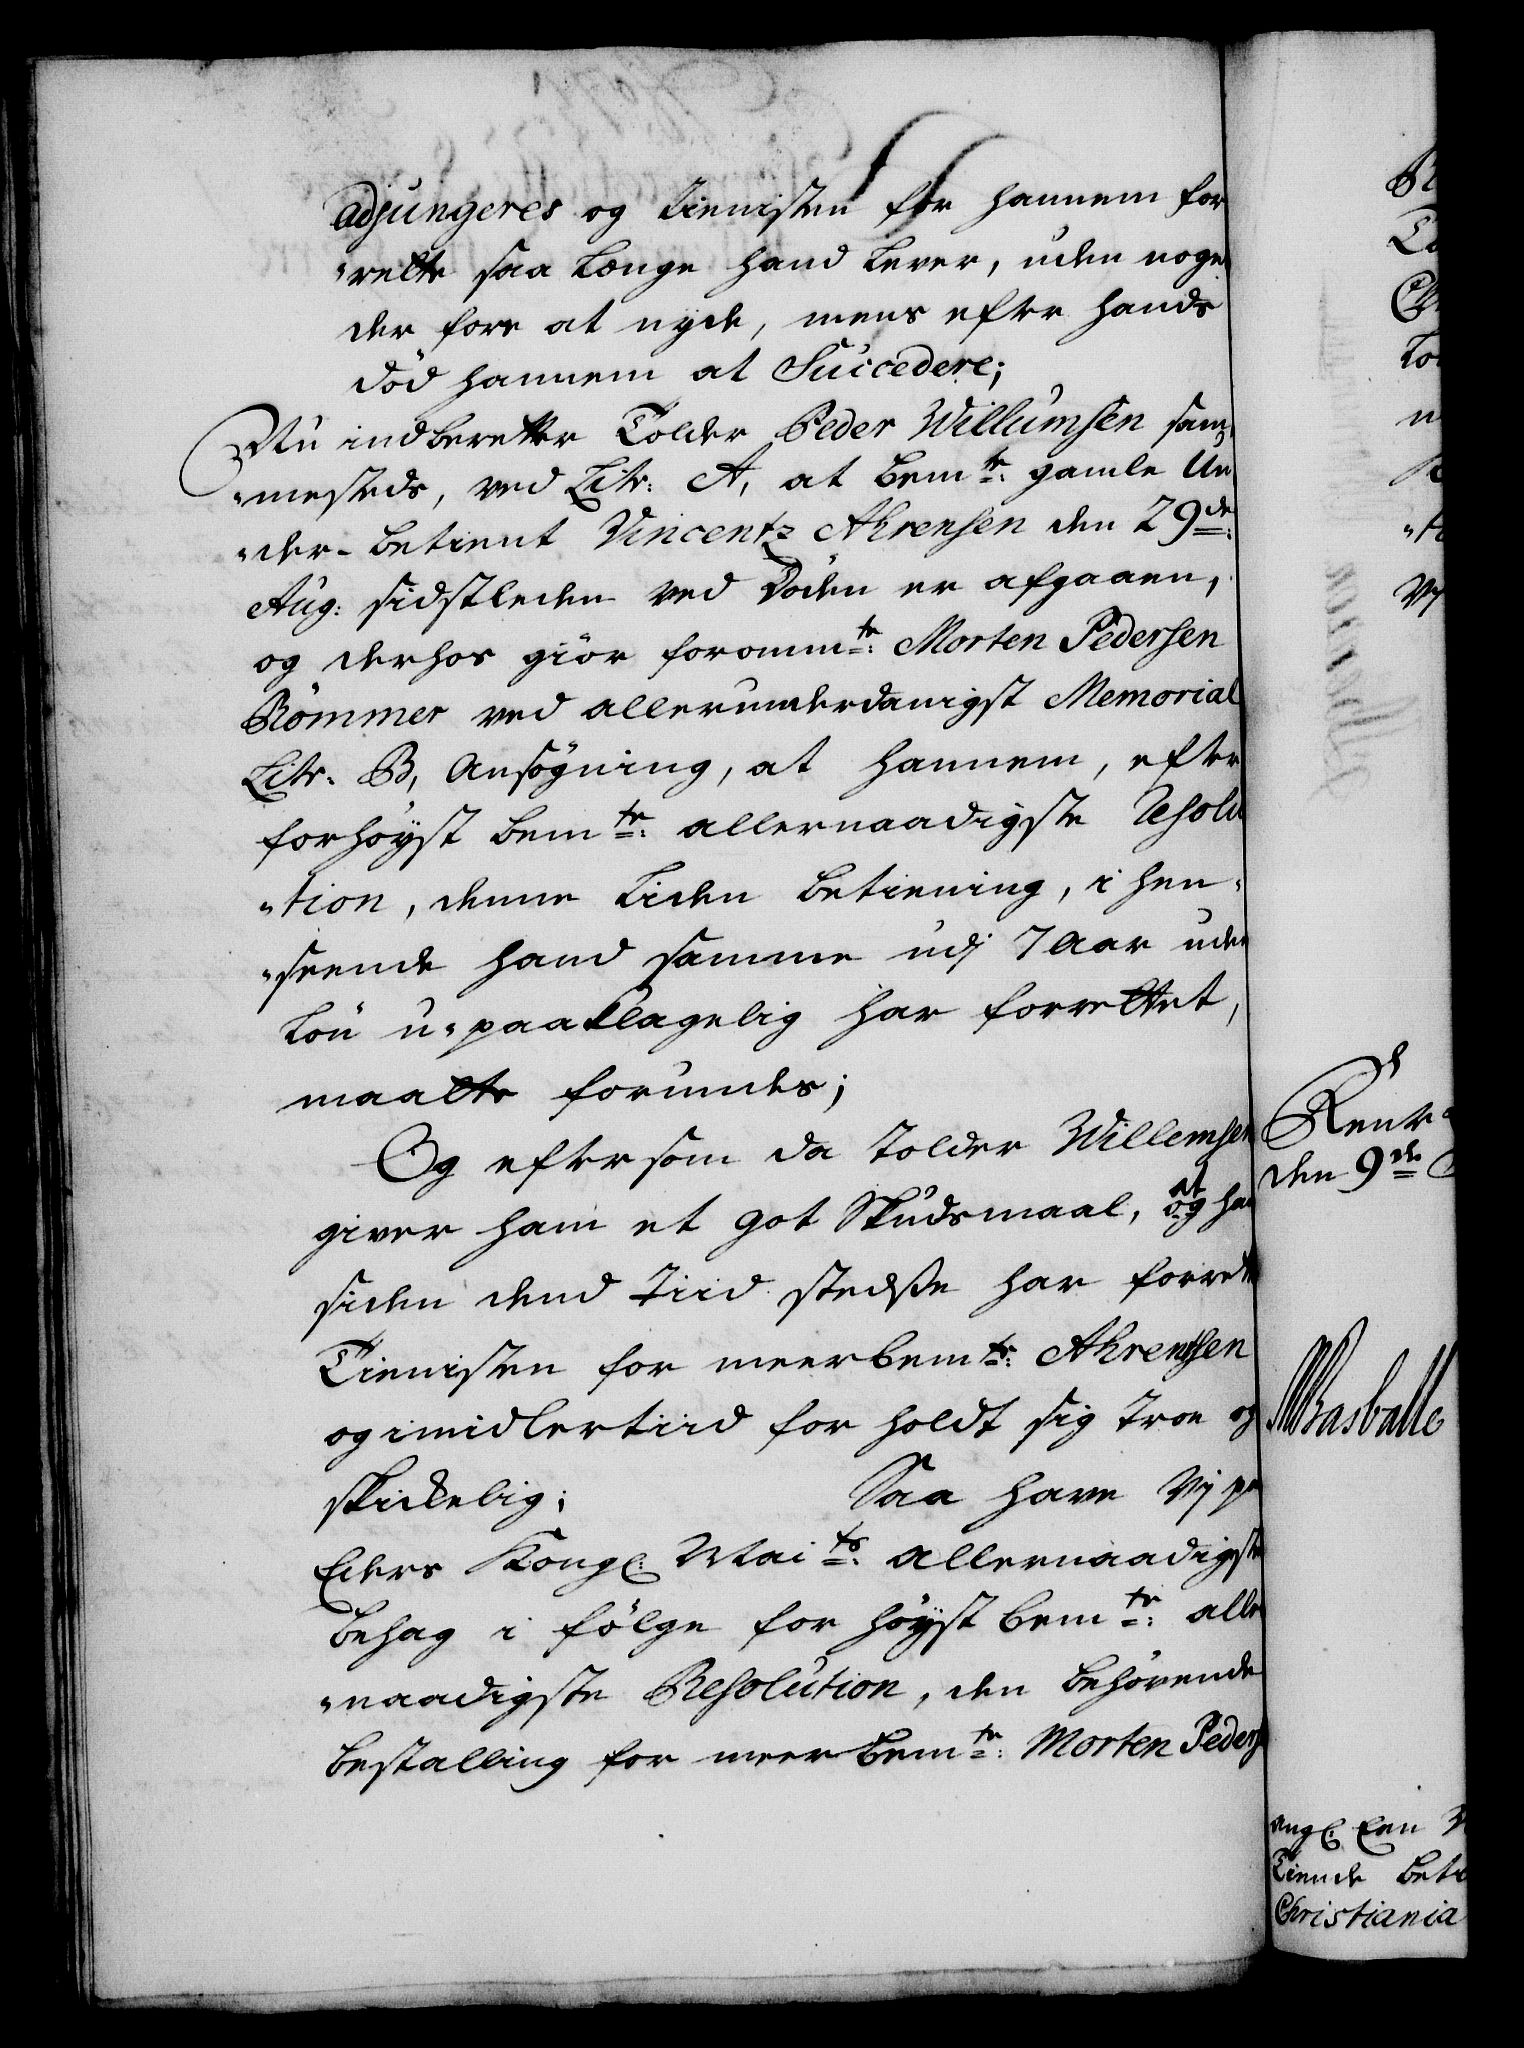 adjungeres og tienisten for hannem for
"rette saa længe hand lever, uden noge
der fore at nyde, mens efter hands
död hannem at Succedere;
Nu indberetter Tolder Peder Willumsen sam
"mesteds, ved Litr: A, at bem.te: gamle Un
"der-betient Vincentz Ahrensen den 29de:
Aug: sidstleden ved Döden er afgaaen,
og derhos giör foromm.te: Morten Pedersen
Römmer ved allerunderdanigst Memorial
Litr. B, Ansögning, at hannem, efter
forhöyst bem.te: allernaadigste Resolu
"tion, denne liden betiening, i hen"
"seende hand samme udj 7 Aar uden
lön u-paaklagelig har forrettet,
maatte forundes;
Og eftersom da tolder Willemsen
giver ham et got Skudsmaal, at og hand
siden dend Tiid stedsse har forrett
Tienisten for meerbem.te: Ahrentsen
og imidlertiid for holdt sig troe og
skickelig; Saa have Vj paa
Eders Kongl: Mai.ts: allernaadigste
behag i fölge for höyst bem.te: aller
"naadigste Resolution, den behörende
bestalling for meer bem.te: Morten Peders
Rent
den 9de
Basballe
ang: Een
Tiende Beti
Christiania